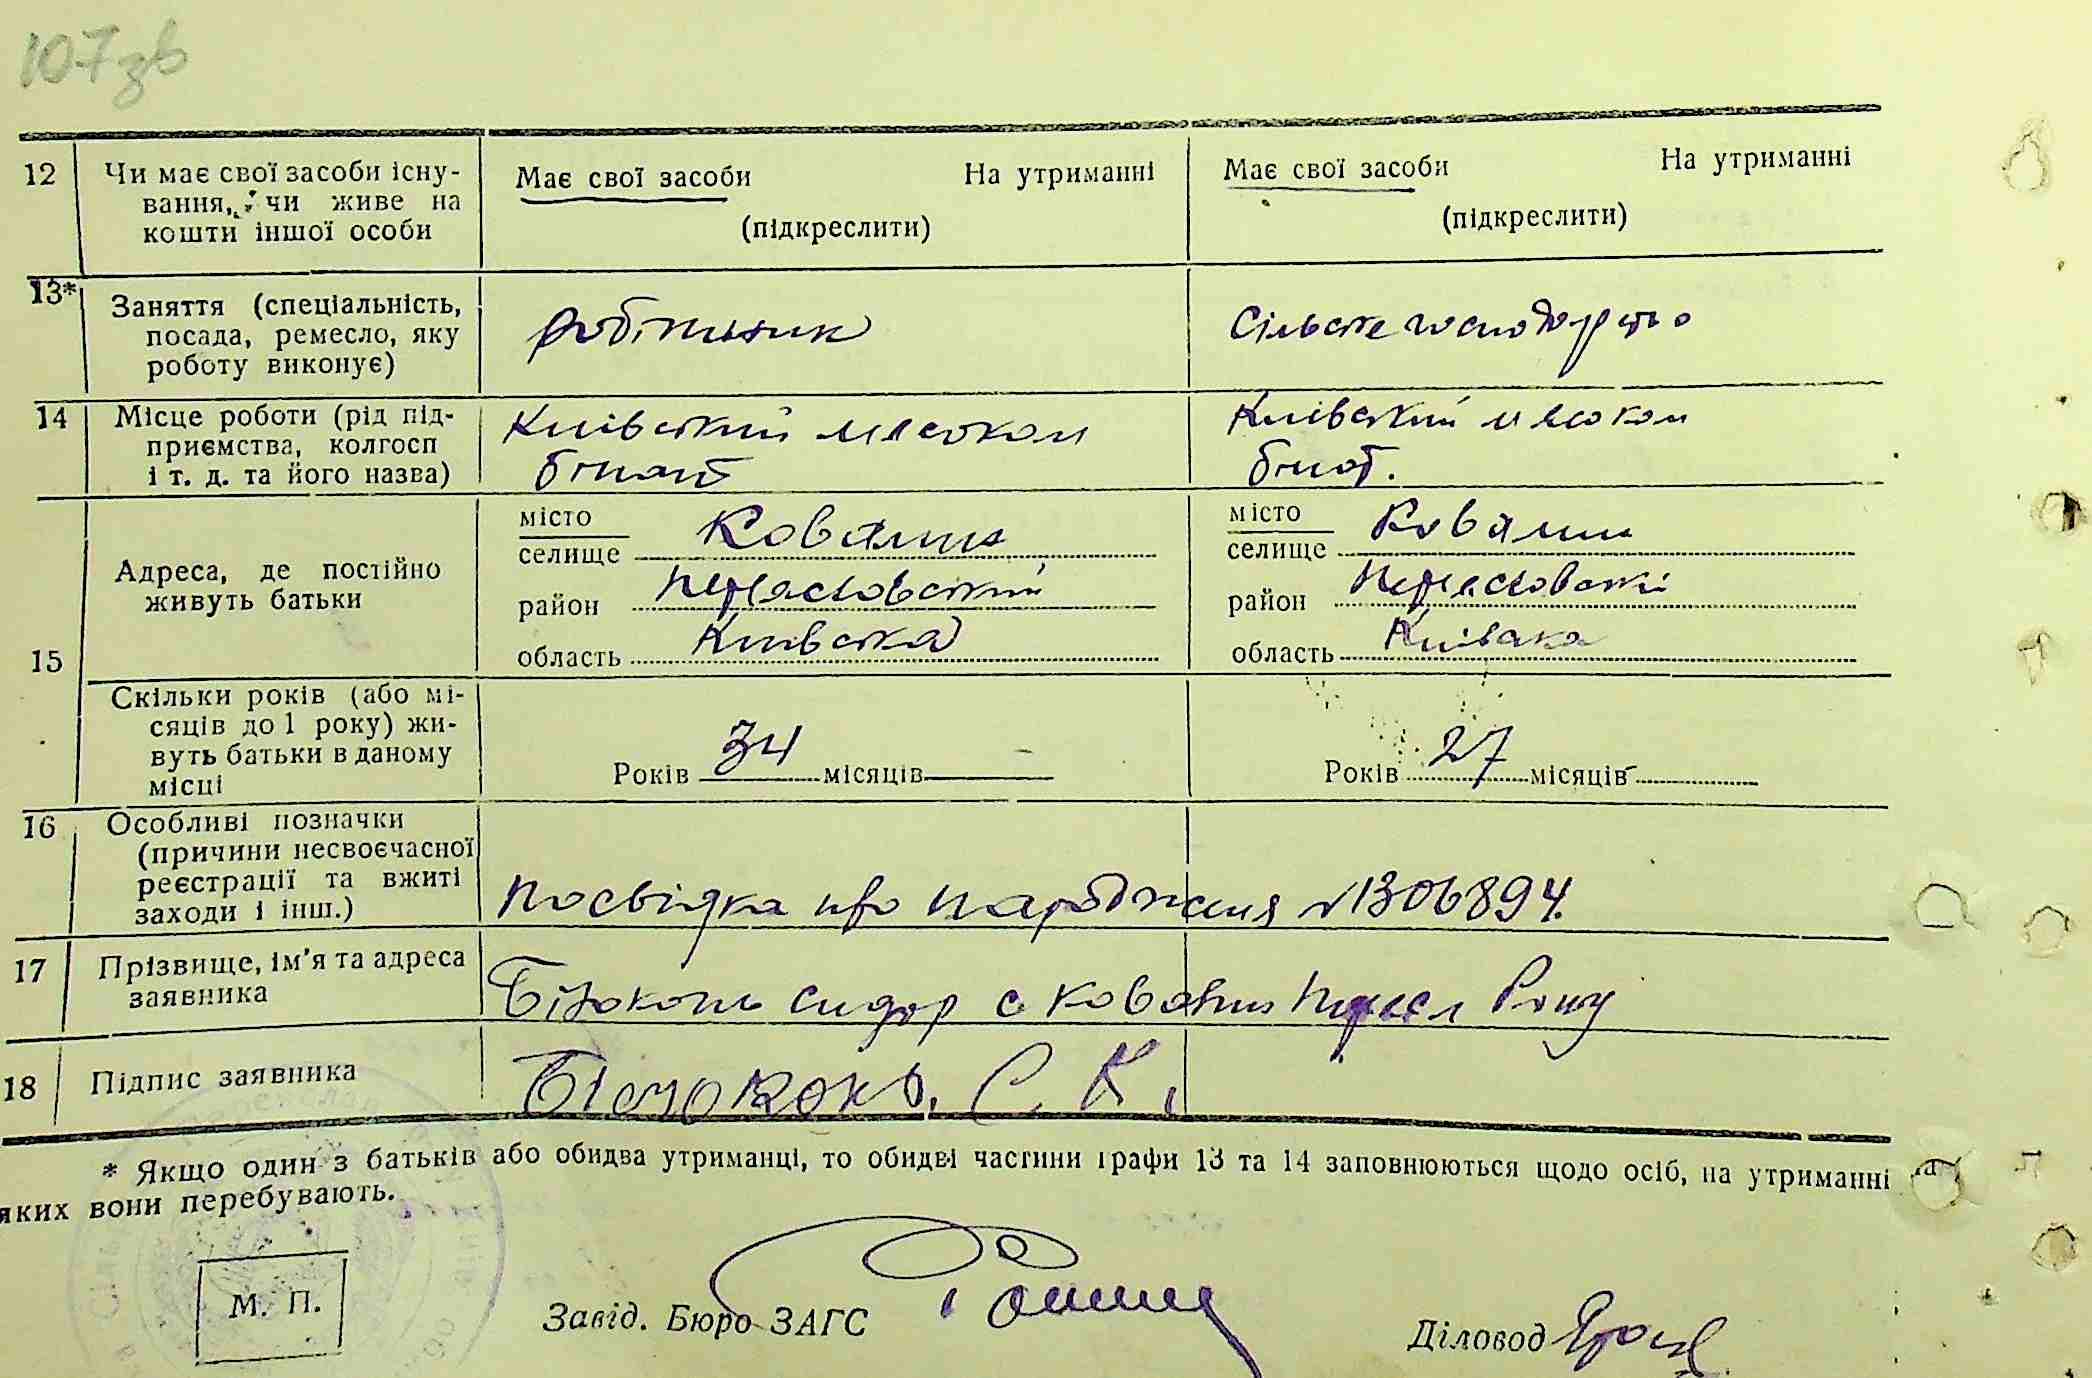 107зв
12 Чи має свої засоби існу- Має свої засоби На утриманні Має свої засоби На утриманні
вання, чи живе на (підкреслити) (підкреслити)
кошти іншої особи
13* Заняття (спеціальність, робітник Сільське господарство
посада, ремесло, яку
роботу виконує)
14 Місце роботи (рід під- Київський мясоком Київський мясоком
приємства, колгосп бінат бінат.
і т. д. та його назва)
15 Адреса, де постійно місто селище Ковалин місто селище Ковалин
живуть батьки район Переясловський район Переясловські
область Київська область Київска
Скільки років (або мі-
сяців до 1 року) жи-
вуть батьки в даному Років 34 місяців — Років 27 місяців
місці
16 Особливі позначки
(причини несвоєчасної
реєстрації та вжиті
заходи і інш.) Посвідка про народження № 1306894.
17 Прізвище, ім'я та адреса
заявника Білоконь Сидор с Ковалин Переясл Рону
18 Підпис заявника Білоконь. С. К.
* Якщо один з батьків або обидва утриманці, то обидві частини графи 13 та 14 заповнюються щодо осіб, на утриманні
яких вони перебувають.
М. П. Завід. Бюро ЗАГС Діловод